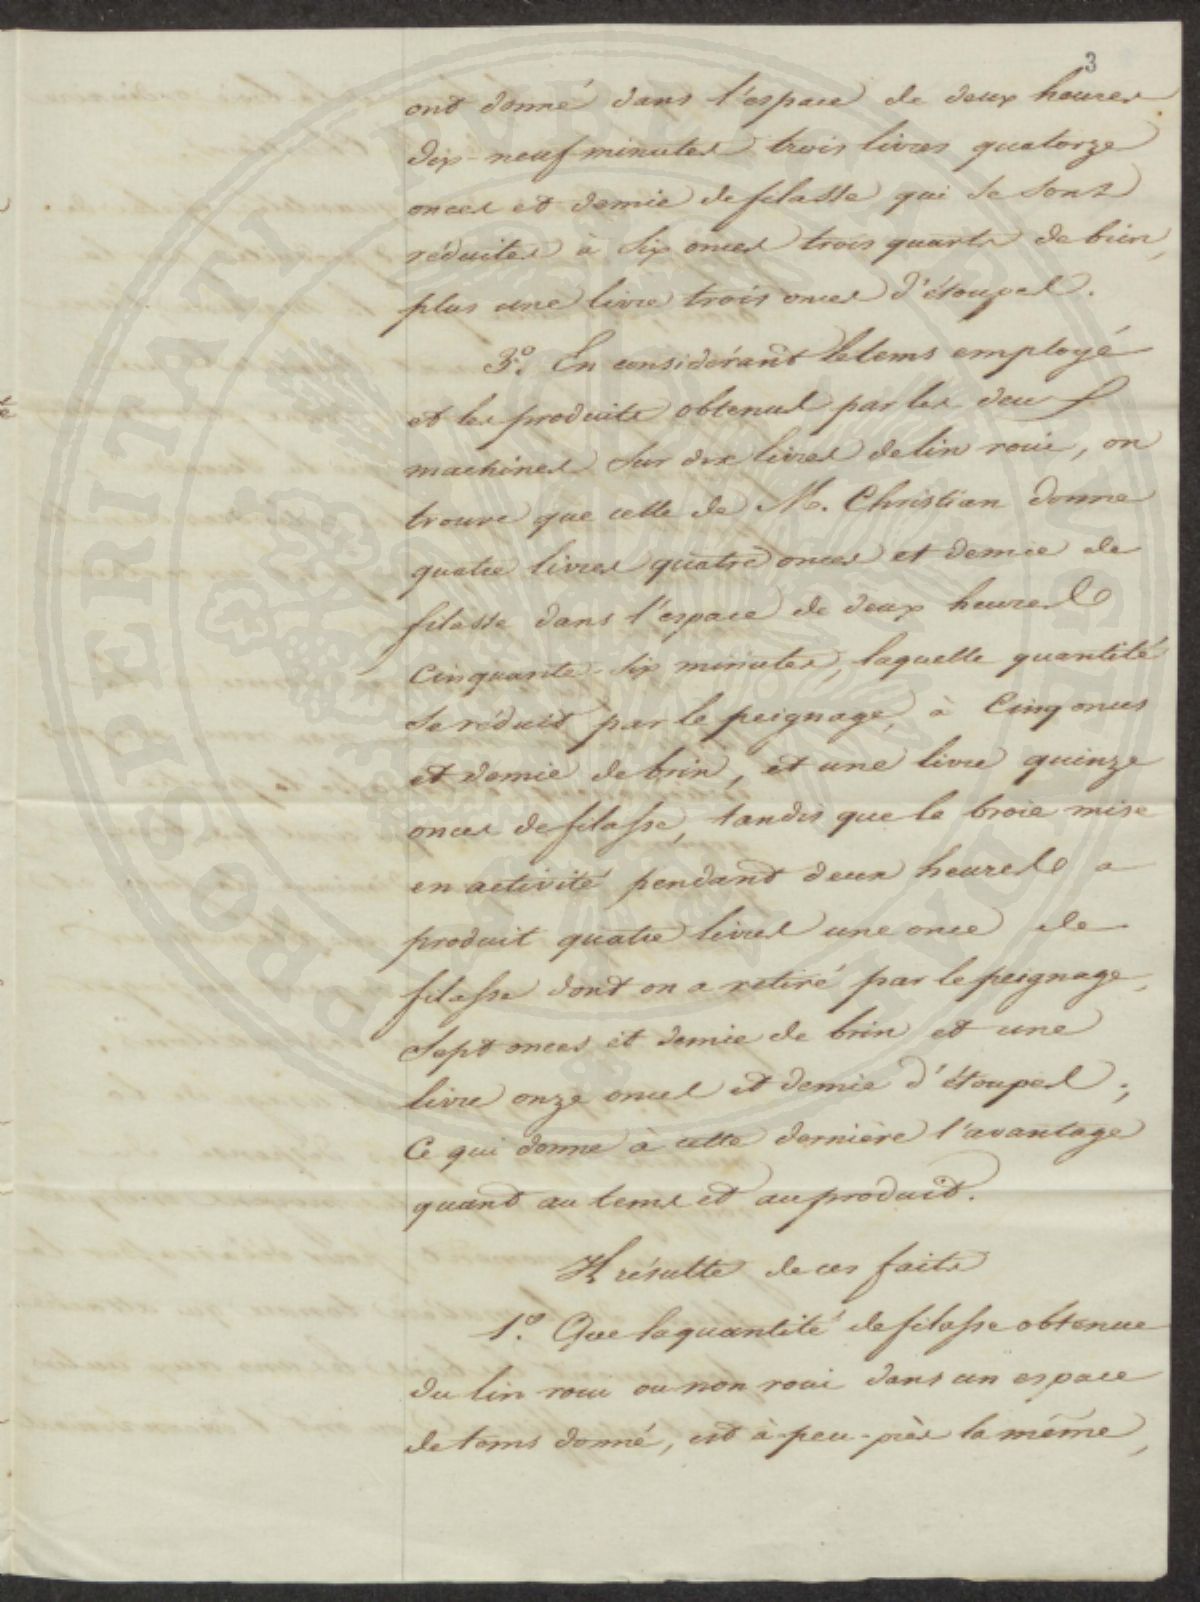 3
ont donné dans l'espace de deux heures
dix-neuf minutes trois livres quatorze
onces et demie de filasse qui se sont
réduites à six onces trois quarts de brin,
plus une livre trois onces d'étoupes.
3.° En considérant le tems employé
et les produits obtenus par les deux
machines sur dix livres de lin roui, on
trouve que celle de M. Christian donne
quatre livres quatre onces et demie de
filasse dans l'espace de deux heures
cinquante-six minutes, laquelle quantité
se réduit par le peignage, à cinq onces
et demie de brin, et une livre quinze
onces de filasse, tandis que la broie mise
en activité pendant deux heures a
produit quatre livres une once de
filasse dont on a retiré par le peignage,
sept onces et demie de brin et une
livre onze onces et demie d'étoupes;
Ce qui donne à cette dernière l'avantage
quant au tems et au produit.
Il résulte de ces faits
1.° Que la quantité de filasse obtenue
du lin roui ou non roui dans un espace
de tems donné, est à-peu-près la même,
PROSPERITATI PVBLICAE